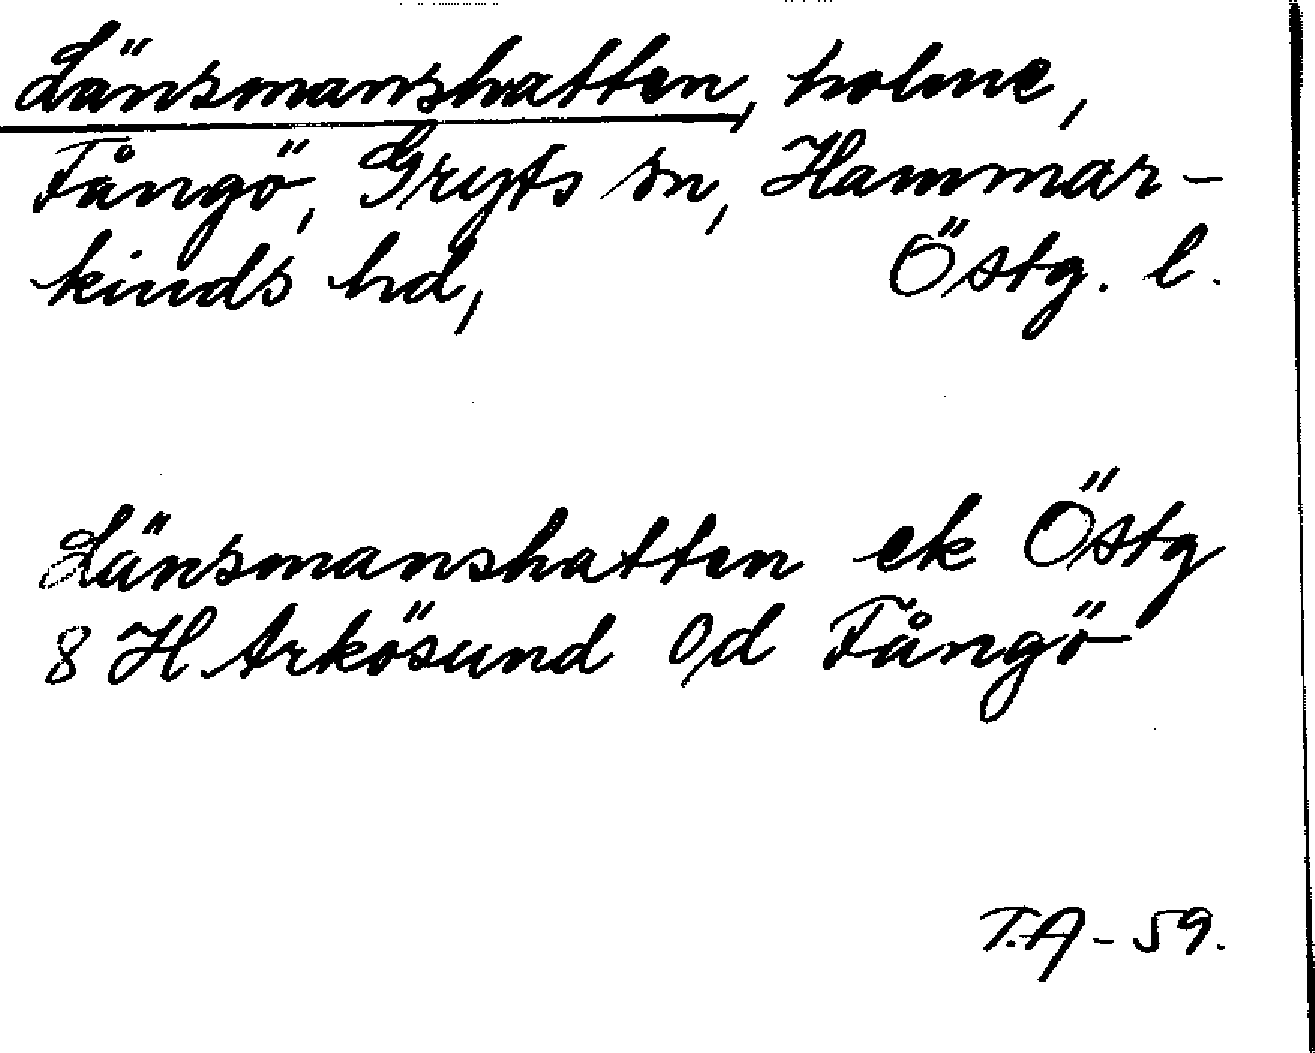 Länsmanshatten, holme,
Fångö, Gryts sn, Hammar-
kinds hd, Östg. l.
Länsmanshatten ek Östg
8 H Arkösund 0/d Fångö
T.A - 59.